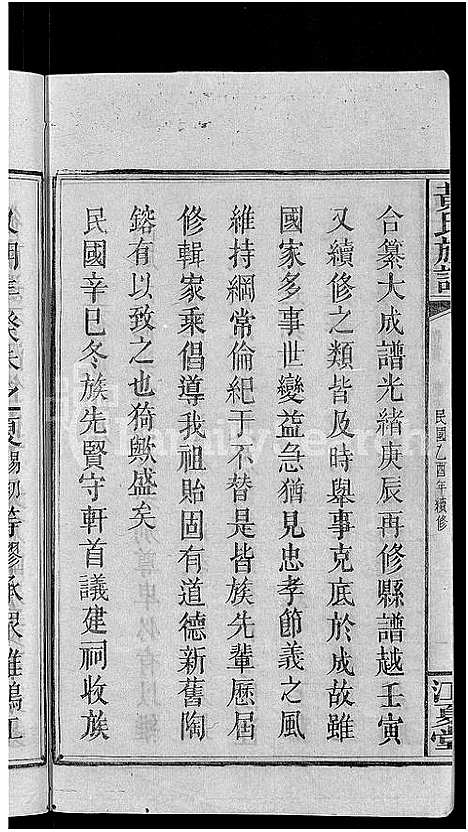 黃氏族譜
民國乙酉年續修
江夏堂
合纂大成譜光緒庚辰再修縣譜越壬寅
又續修之類皆及時舉事克底於成故雖
國家多事世變益急猶見忠孝節義之風
維持綱常倫紀于不替是皆族先輩歷屆
修輯家乘倡導我祖貽固有道德新舊陶
鎔有以致之也猗歟盛矣
民國辛巳冬族先賢守軒首議建祠收族